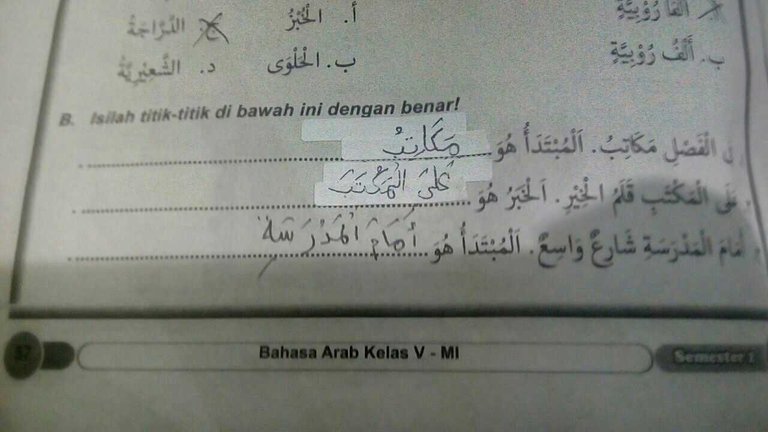 أَلْفَا رُوْبِيَّةٍ أ. الْخُبْزُ ج. الدَّرَّاجَةُ
ب. أَلْفُ رُوْبِيَّةٍ ب. الْحَلْوَى د. الشَّعِيْرِيَّةُ
B. Isilah titik-titik di bawah ini dengan benar!
الْفَصْلِ مَكَاتِبُ. اَلْمُبْتَدَأُ هُوَ مَكَاتِبُ
الْمَكْتَبِ قَلَمُ الْحِبْرِ. اَلْخَبَرُ هُوَ عَلَى الْمَكْتَبَ
أَمَامَ الْمَدْرَسَةِ شَارِعٌ وَاسِعٌ. اَلْمُبْتَدَأُ هُوَ أَمَامَ الْمَدْرَسَةِ
37 Bahasa Arab Kelas V - MI Semester 1